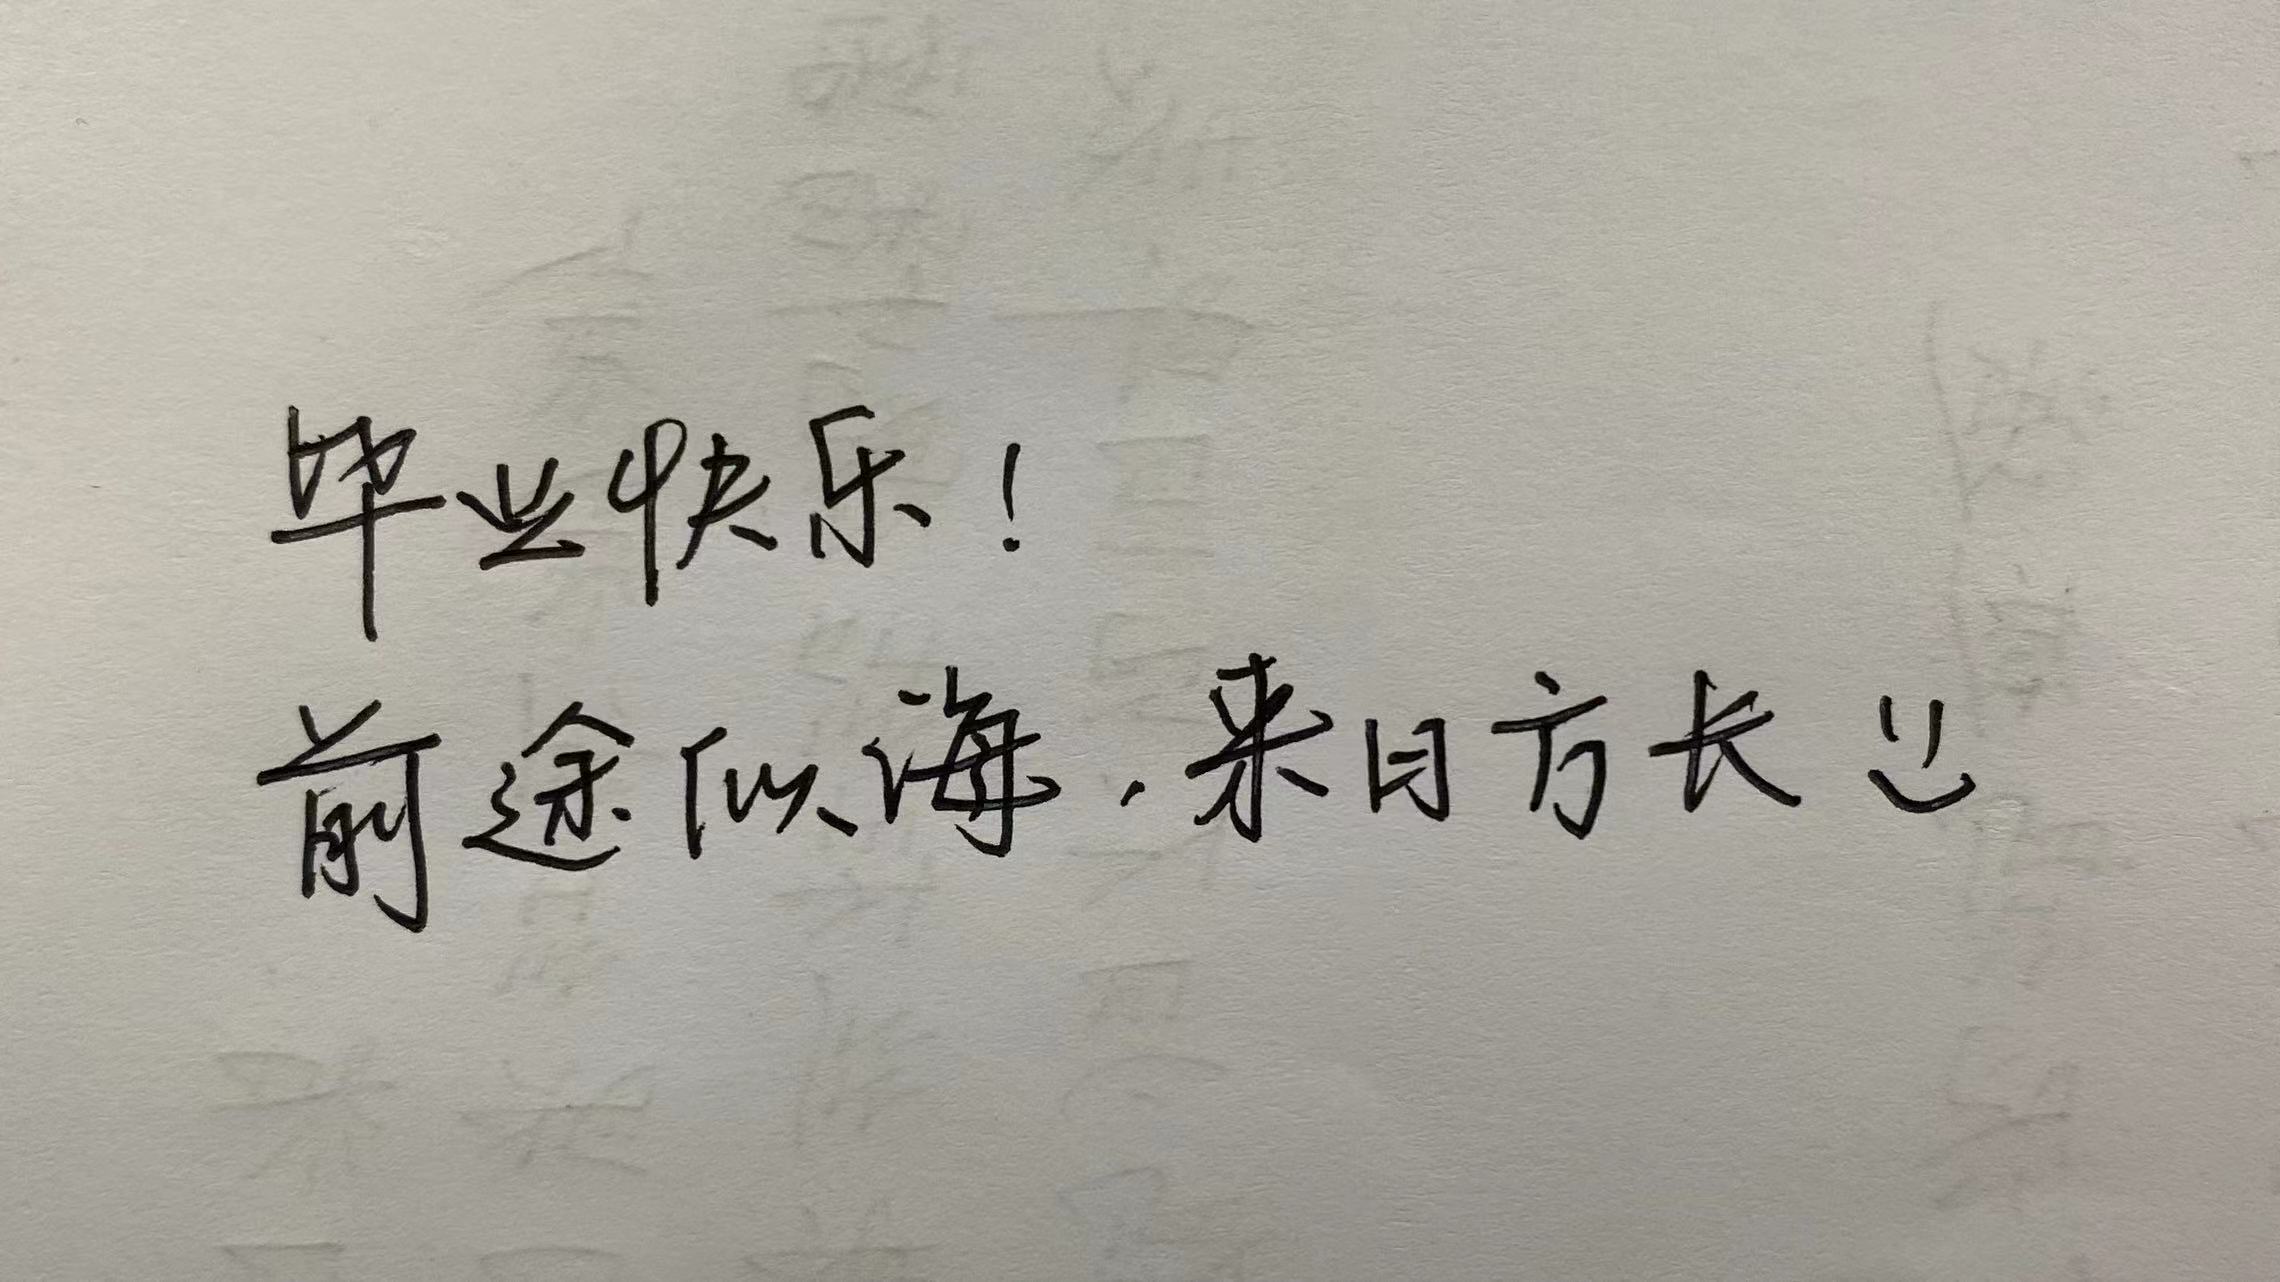 毕业快乐！
前途似海，来日方长 :)